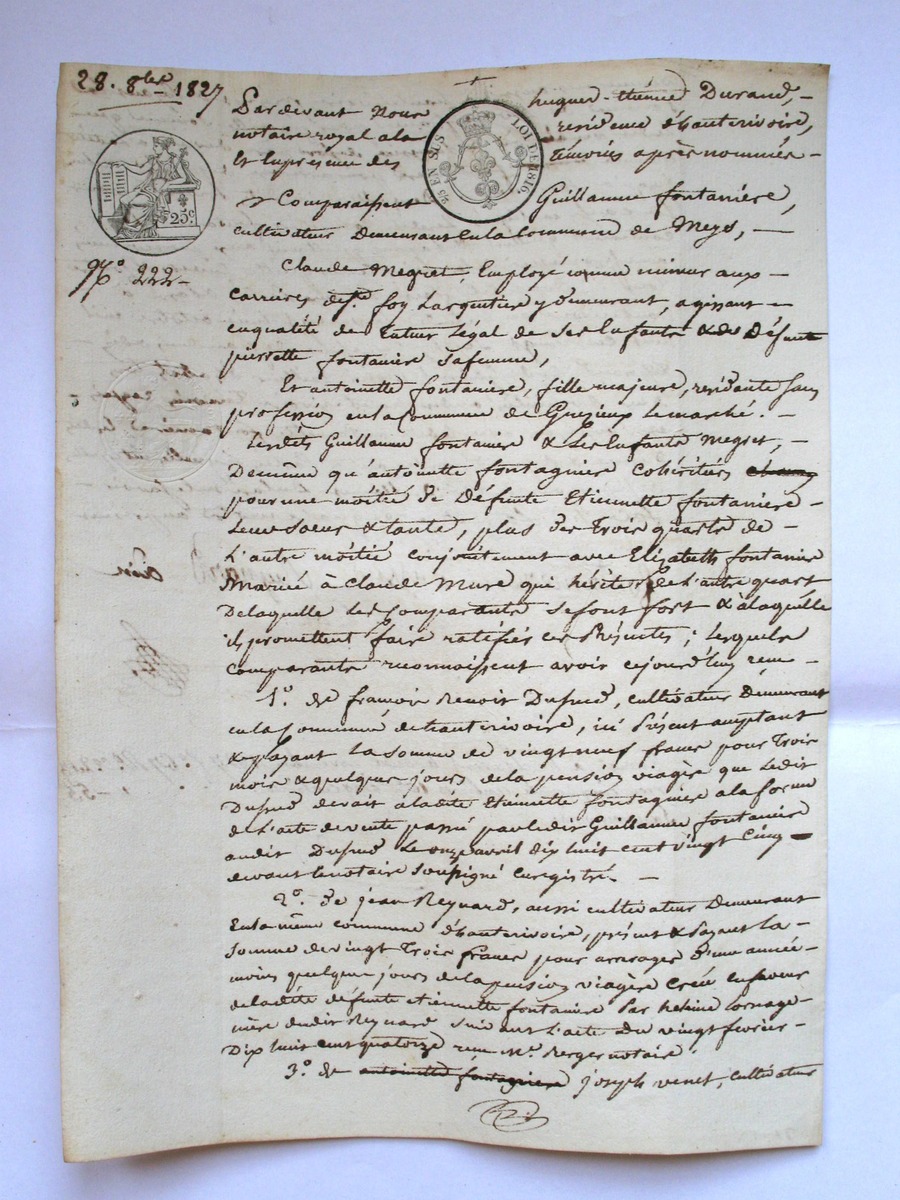 28. 8bre 1827
Pardevant Nous hugues-étienne Durand,
notaire royal a la résidence d'hauterivoire,
Et En présence des témoins après nommés
25 EN SUS LOI DE 1816.
25 c
Comparaissent Guillaume fontanière,
cultivateur Demeurant En la Commune de Meys,
N.º 222
Claude Megret, Employé comme mineur aux
Carrières de Ste foy Largentière y demeurant, agissant
en qualité de tuteur légal de ses Enfants & de Défunte
pierrette fontaniere sa femme,
Et antoinette fontaniere, fille majeure, résidante sans
profession en la Commune de Grezieux le marché.
Lesdits Guillaume fontaniere & les Enfants Megret,
De même qu'antoinette fontagniere Cohéritiers
pour une moitié de Défunte Etiennette fontaniere
Leur soeur & tante, plus des Trois quarts de
L'autre moitié conjointement avec Elizabeth fontaniere
Mariée à Claude Mure qui héritier de L'autre quart
De laquelle les Comparants se font fort & à laquelle
ils promettent faire ratifier ces Présentes; Lesquels
comparants reconnaissent avoir cejourd'huy reçu
1.º de françois Benoit Dupré, cultivateur Demeurant
en la Commune de hauterivoire, ici Présent acceptant
& payant La somme de vingt neuf francs pour Trois
mois & quelques jours de la pension viagère que Ledit
Dupré devait à ladite Etiennette fontagniere a la forme
de L'acte de vente passé par ledit Guillaume fontaniere
audit Dupré Le onze avril dix huit cent vingt Cinq
devant le notaire soussigné Enregistré.
2.º de jean Reynard, aussi cultivateur Demeurant
En la même commune d'hauterivoire, présent & Payant La
somme de vingt Trois francs pour arrérages d'une année
moins quelques jours de la pension viagère Créée en faveur
de ladite défunte etiennette fontaniere Par
mère dudit Reynard suivant L'acte Du vingt février
Dix huit cent quatorze reçu Me. Berger notaire.
3.º de antoinette fontagniere joseph venet, cultivateur